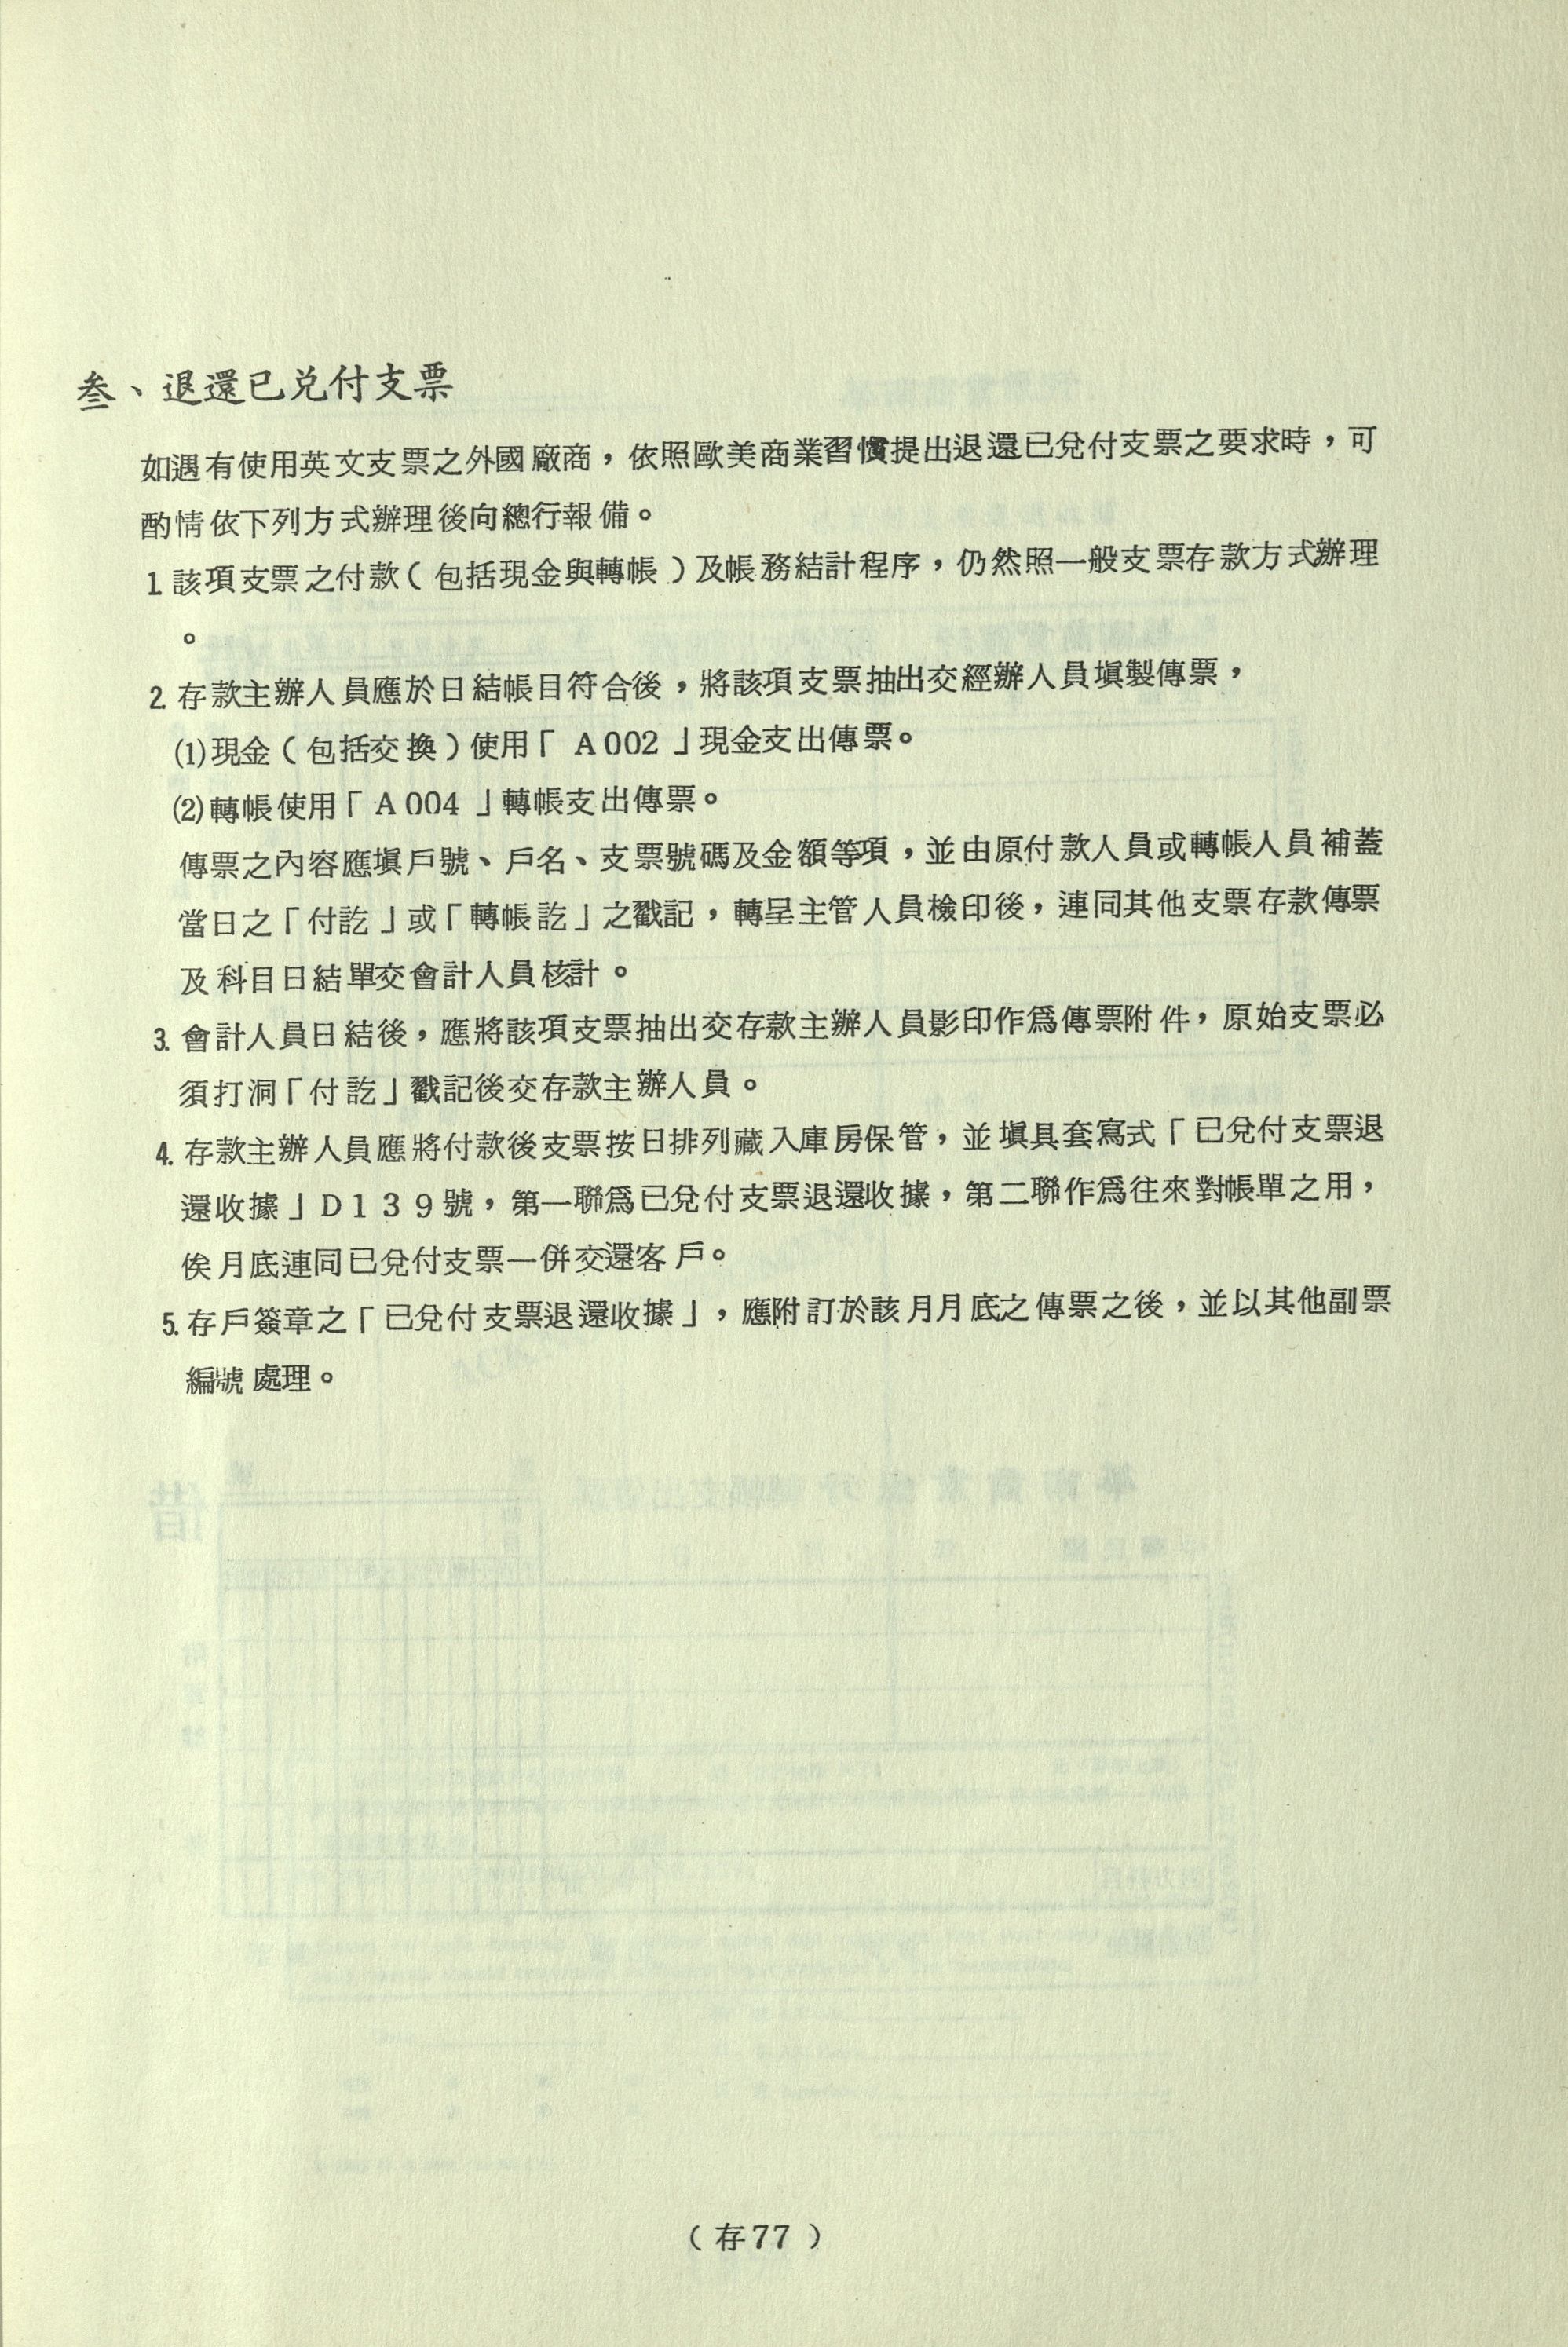 叁、退還已兌付支票
如遇有使用英文支票之外國廠商，依照歐美商業習慣提出退還已兌付支票之要求時，可
酌情依下列方式辦理後向總行報備。
1.該項支票之付款（包括現金與轉帳）及帳務結計程序，仍然照一般支票存款方式辦理
。
2.存款主辦人員應於日結帳目符合後，將該項支票抽出交經辦人員塡製傳票，
(1)現金（包括交換）使用「A002」現金支出傳票。
(2)轉帳使用「A004」轉帳支出傳票。
傳票之內容應塡戶號、戶名、支票號碼及金額等項，並由原付款人員或轉帳人員補蓋
當日之「付訖」或「轉帳訖」之戳記，轉呈主管人員檢印後，連同其他支票存款傳票
及科目日結單交會計人員核計。
3.會計人員日結後，應將該項支票抽出交存款主辦人員影印作爲傳票附件，原始支票必
須打洞「付訖」戳記後交存款主辦人員。
4.存款主辦人員應將付款後支票按日排列藏入庫房保管，並塡具套寫式「已兌付支票退
還收據」D139號，第一聯爲已兌付支票退還收據，第二聯作爲往來對帳單之用，
俟月底連同已兌付支票一併交還客戶。
5.存戶簽章之「已兌付支票退還收據」，應附訂於該月月底之傳票之後，並以其他副票
編號處理。
（存77）